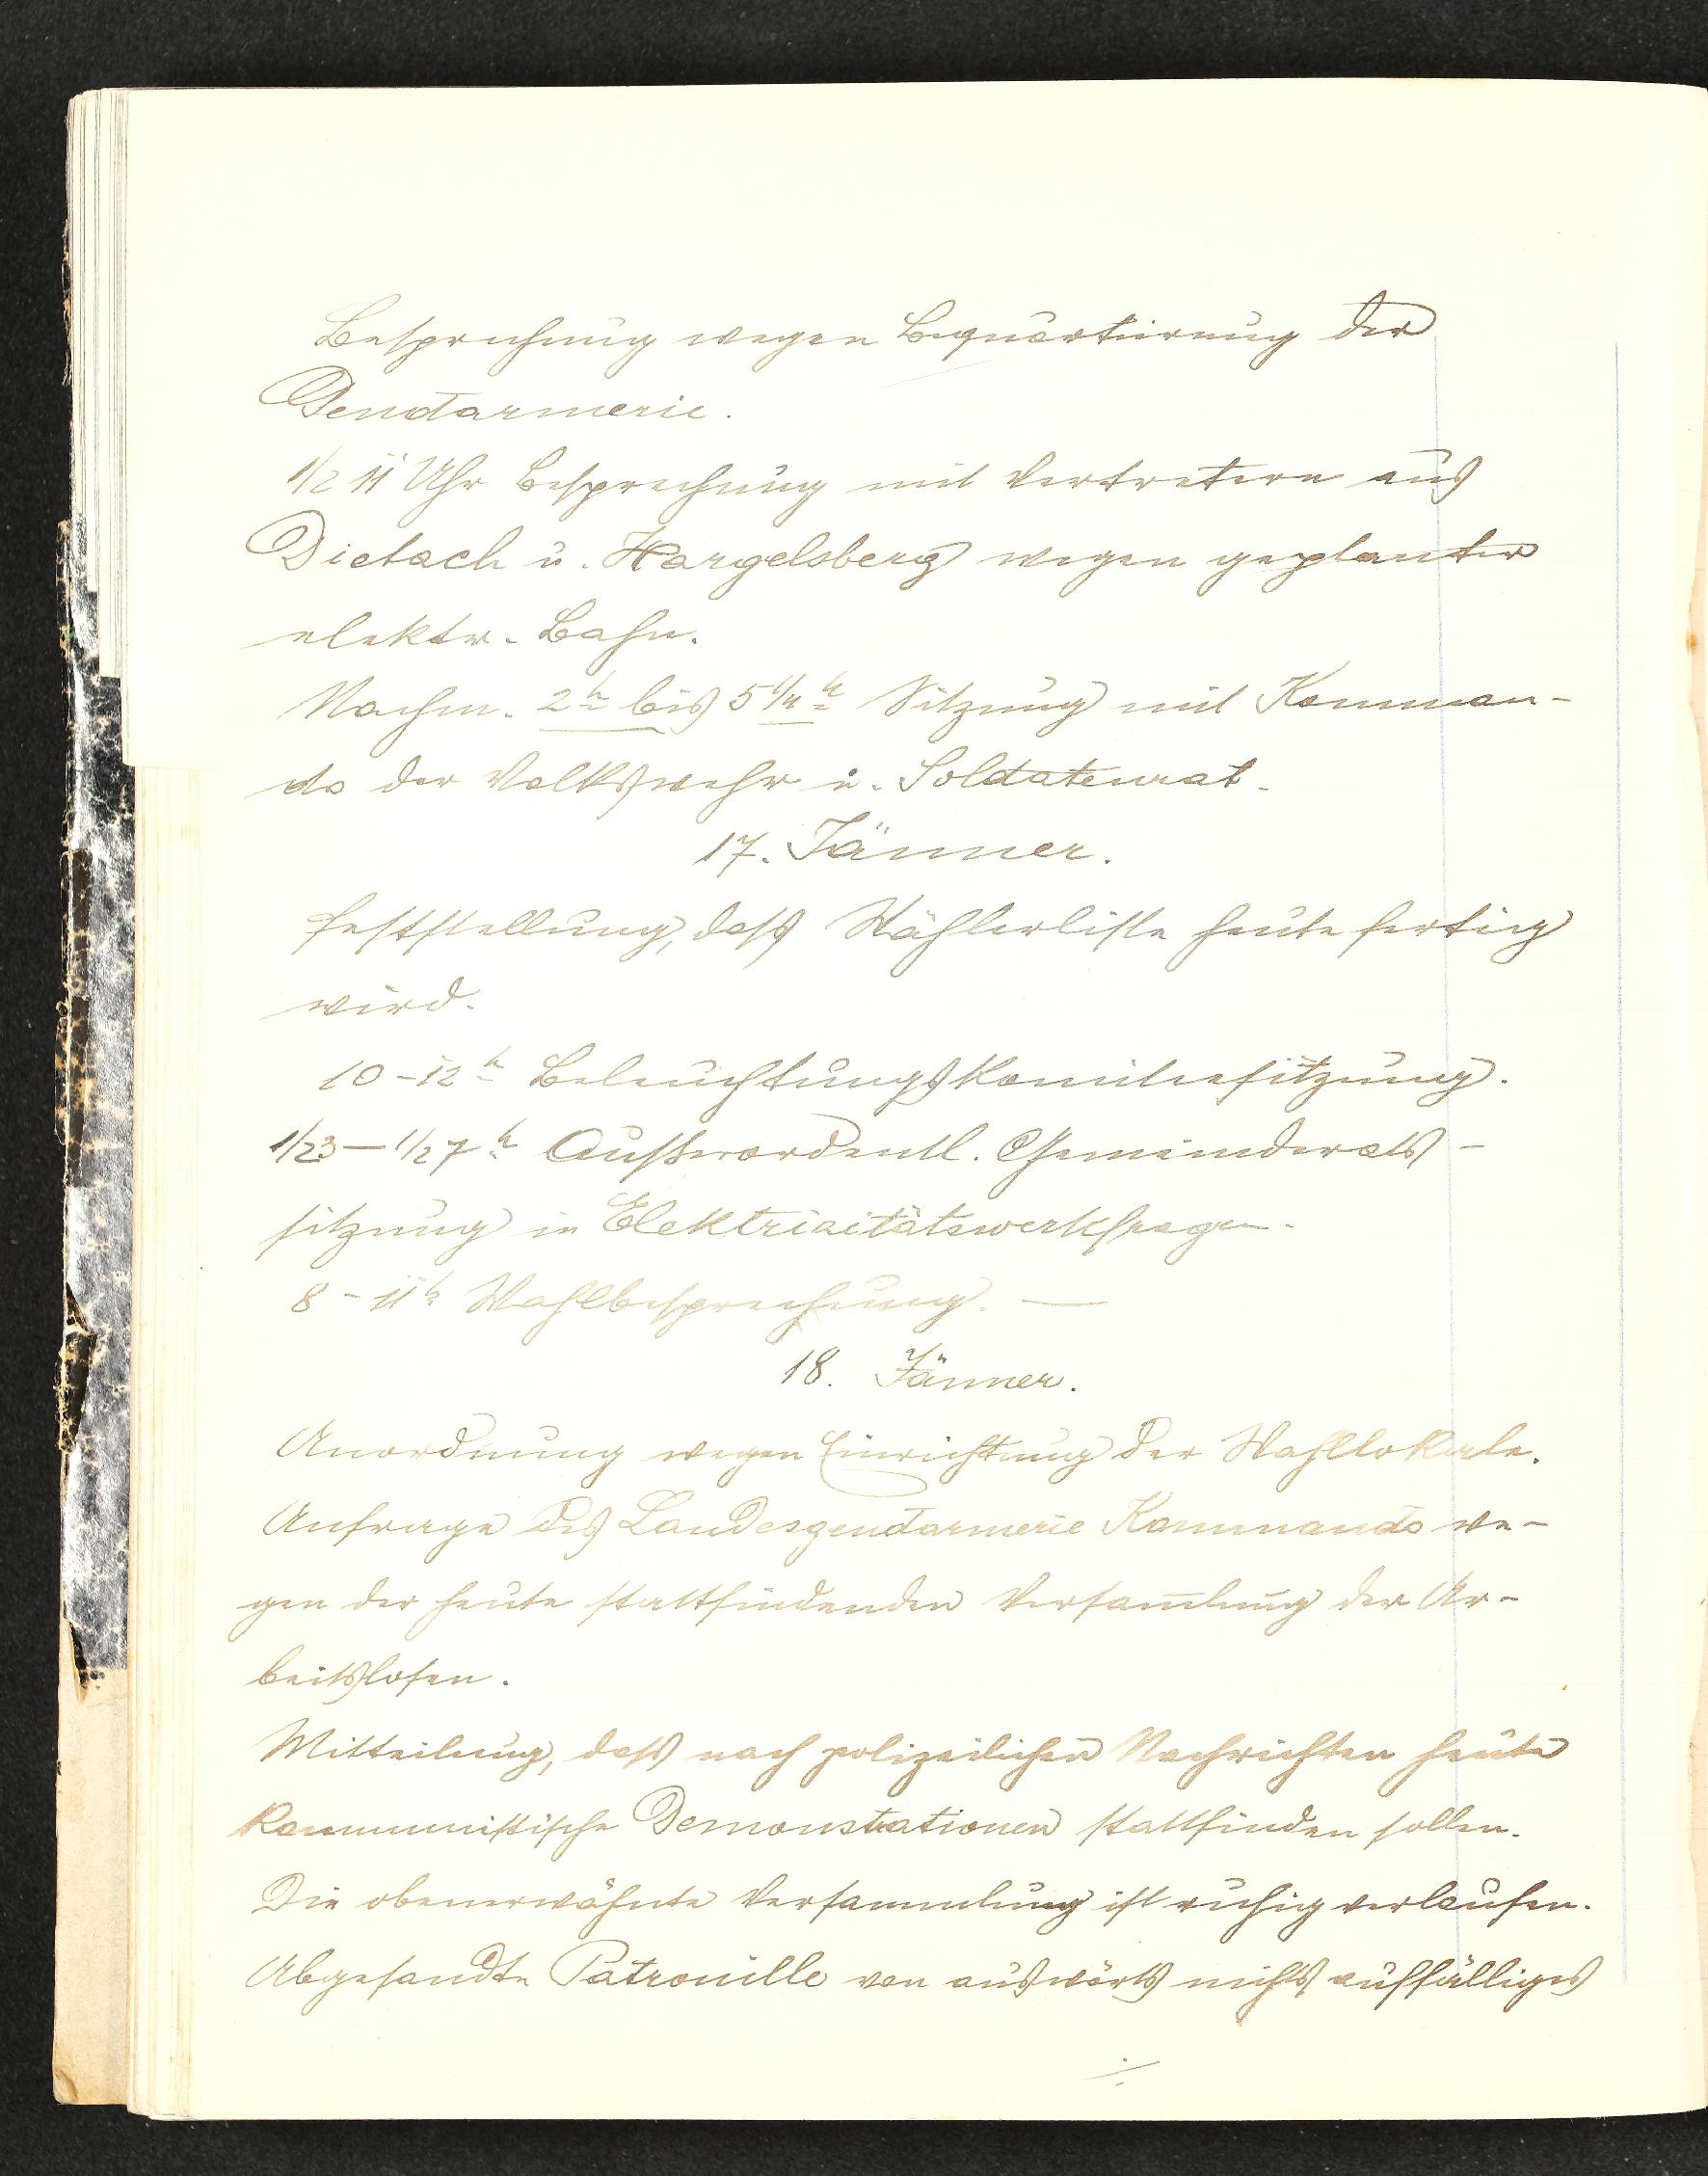 Besprechung wegen Bequartierung der
Gendarmerie.
1/2 11 Uhr Besprechung mit Vertretern aus
Dietach u. Hargelsberg wegen geplanter
elektr. Bahn.
Nachm. 2h bis 5 1/4 h Sitzung mit Komman-
do der Volkswehr u. Soldatenrat.
17. Jänner.
Feststellung, dass Wählerliste heute fertig
wird.
10-12h Beleuchtungskomiteesitzung.
1/2 3 - 1/2 7 h Ausserordentl. Gemeinderats-
sitzung in Elektrizitätswerksfragen.
8 - 11h Wahlbesprechung. —
18. Jänner.
Anordnung wegen Einrichtung der Wahllokale.
Anfrage des Landesgendarmerie Kommando we-
gen der heute stattfindenden Versam̅lung der Ar-
beitslosen.
Mitteilung, dass nach polizeilichen Nachrichten heute
kommunistische Demonstrationen stattfinden sollen.
Die obenerwähnte Versammlung ist ruhig verlaufen.
Abgesandte Patrouille von auswärts nichts auffälliges
./.